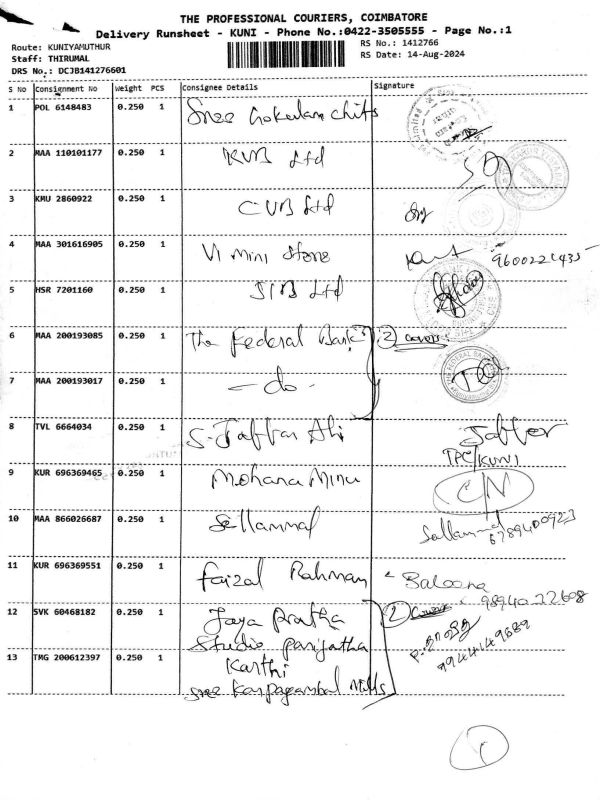 THE PROFESSIONAL COURIERS, COIMBATORE
Delivery Runsheet - KUNI - Phone No.:0422-3505555 - Page No.:1
Route: KUNIYAMUTHUR
RS No.: 1412766
Staff: THIRUMAL
RS Date: 14-Aug-2024
DRS No.: DCJB141276601
S No Consignment No Weight PCS Consignee Details Signature
1 POL 6148483 0.250 1 Sree Gokulam Chits
2 MAA 110101177 0.250 1 KVB Ltd
3 KMU 2860922 0.250 1 CUB Ltd
4 MAA 301616905 0.250 1 Vi Mini Store 9600221435
5 HSR 7201160 0.250 1 SIB Ltd
6 MAA 200193085 0.250 1 The Federal Bank 2 Covers
7 MAA 200193017 0.250 1 - do -
8 TVL 6664034 0.250 1 S. Jaffar Ali Jaffer
TPC/KUNI
9 KUR 696369465 0.250 1 Mohana Minu
10 MAA 866026687 0.250 1 Sellammal
11 KUR 696369551 0.250 1 Faizal Rahman
9894022608
12 SVK 60468182 0.250 1 Jaya Pratha 2
Studio Parijatha
13 TMG 200612397 0.250 1 Karthi
Sree Karpagambal Mills